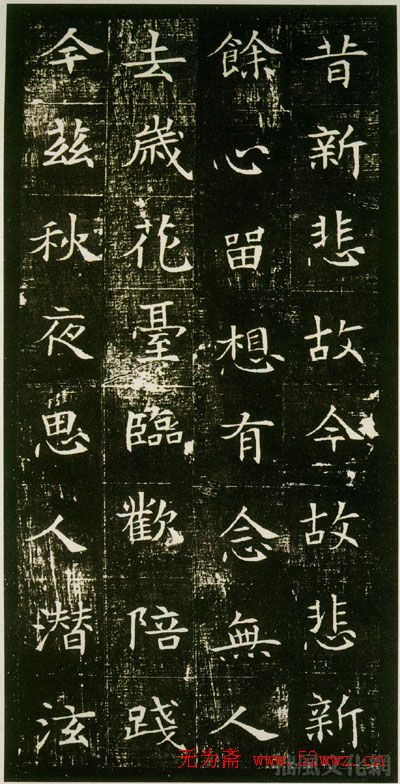 昔新悲故今故悲新
餘心留想有念無人
去歲花臺臨歡陪踐
今茲秋夜思人潛泫
无为斋 www.59wwz.cn